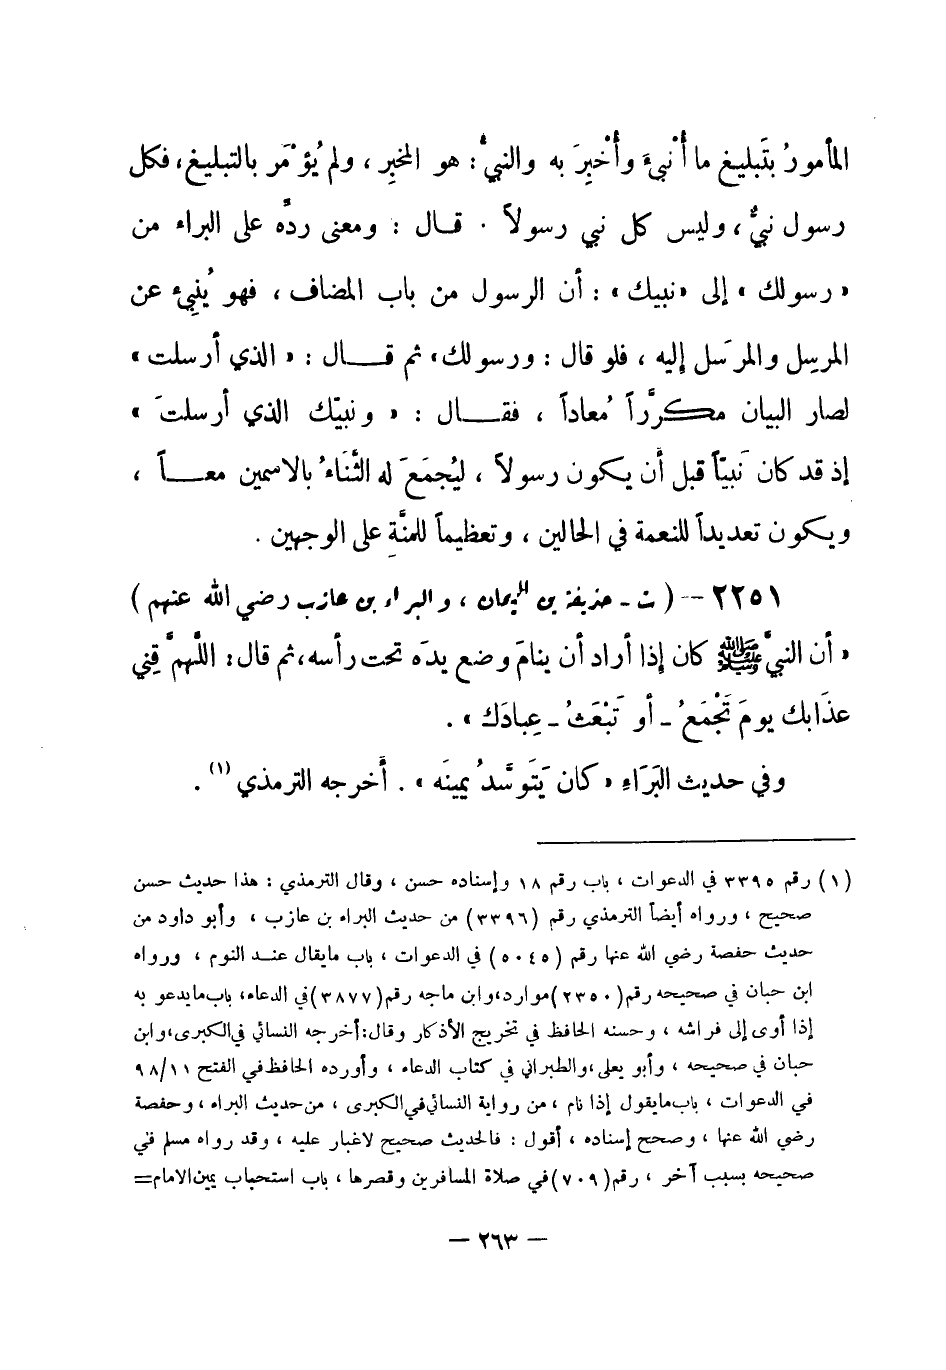 المأمورُ بتَبليغ ما أُنْبيءَ وأُخْبِرَ به والنبيُّ : هو المخبِر ، ولم يُؤْمَر بالتبليغ، فكل
رسول نبيٌّ ، وليس كل نبي رسولاً . قال : ومعنى ردِّه على البراء من
« رسولك » إلى « نبيك » : أن الرسول من باب المضاف ، فهو يُنبِيء عن
المرسِل والمرسَل إليه ، فلو قال : ورسولك» ثم قال : « الذي أرسلت »
لصار البيان مكرَّراً مُعاداً ، فقال : « ونبيّك الذي أرسلتَ »
إذ قد كان نَبيّاً قبل أن يكون رسولاً ، ليُجمَعَ له الثَّنَاءُ بالاسمين معاً ،
ويكون تعديداً للنعمة في الحالين ، وتعظيماً للمنَّةِ على الوجهين .
٢٢٥١ -- ( ت ـ حذيفة بن اليمان ، والبراء بن عازب رضي الله عنهم )
« أن النبيَّ ﷺ كان إذا أراد أن ينامَ وضع يدَه تحت رأسه، ثم قال : اللَّهمَّ قِني
عذَابك يومَ تَجْمَعُ ـ أو تَبْعَثُ ـ عِبادَك » .
وفي حديث البَرَاءِ « كان يَتَوسَّدُ يمينَه » . أَخرجه الترمذي (١) .
(١) رقم ٣٣٩٥ في الدعوات ، باب رقم ١٨ وإسناده حسن ، وقال الترمذي : هذا حديث حسن
صحيح ، ورواه أيضاً الترمذي رقم (٣٣٩٦) من حديث البراء بن عازب ، وأبو داود من
حديث حفصة رضي الله عنها رقم (٥٠٤٥) في الدعوات ، باب مايقال عند النوم ، ورواه
ابن حبان في صحيحه رقم (٢٣٥٠) موارد، وابن ماجه رقم (٣٨٧٧) في الدعاء، باب مايدعو به
إذا أوى إلى فراشه ، وحسنه الحافظ في تخريج الأذكار وقال: أخرجه النسائي في الكبرى، وابن
حبان في صحيحه ، وأبو يعلى، والطبراني في كتاب الدعاء ، وأورده الحافظ في الفتح ٩٨/١١
في الدعوات ، باب مايقول إذا نام ، من رواية النسائي في الكبرى ، من حديث البراء ، وحفصة
رضي الله عنها ، وصحح إسناده ، أقول : فالحديث صحيح لاغبار عليه ، وقد رواه مسلم في
صحيحه بسبب آخر ، رقم (٧٠٩) في صلاة المسافرين وقصرها ، باب استحباب يمين الامام=
— ٢٦٣ —